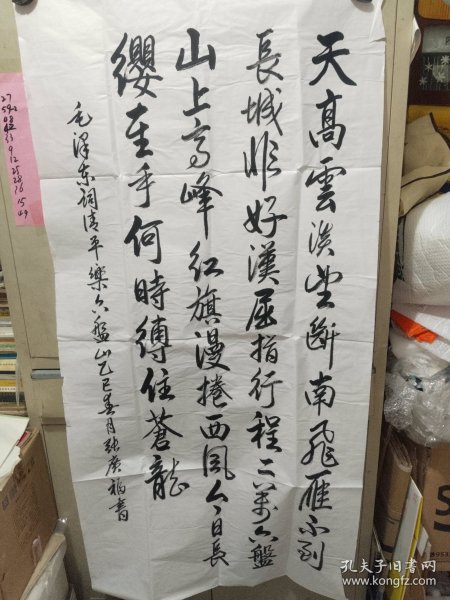 天高雲淡望斷南飛雁不到
長城非好漢屈指行程二萬六盤
山上高峰紅旗漫捲西風今日長
纓在手何時縛住蒼龍
毛澤東詞清平樂六盤山乙巳春月張廣福書
27
15
49
孔夫子旧书网
www.kongfz.com